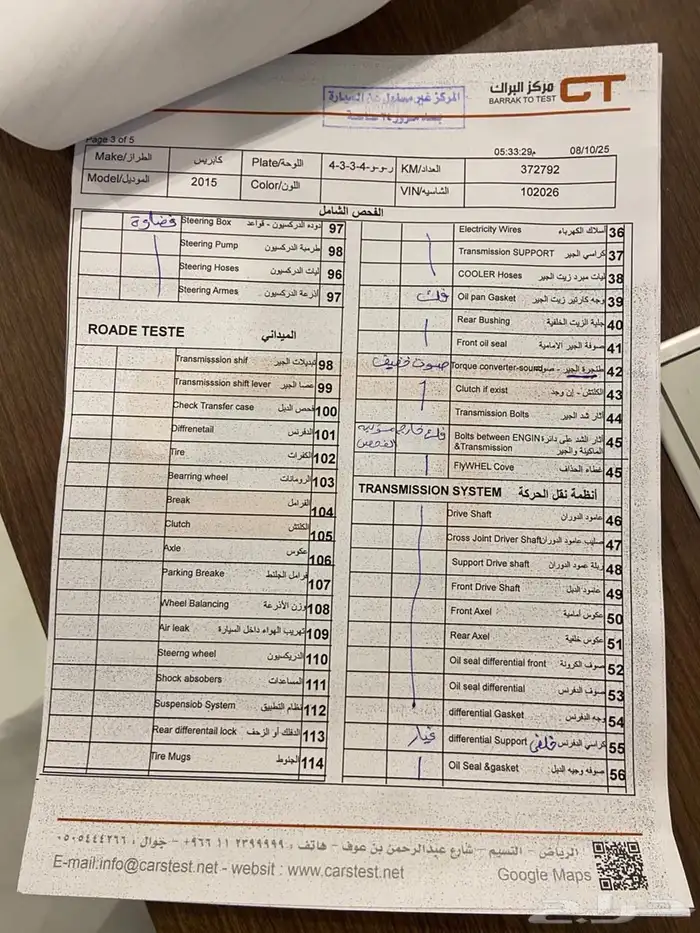 المركز غير مسئول عن السيارة
بعد مرور ٢٤ ساعة
مركز البراك
BARRAK TO TEST
CT
Page 3 of 5
05:33:29م 08/10/25
الطراز/Make كابريس اللوحة/Plate ر-و-و-4-3-3-4 العداد/KM 372792
الموديل/Model 2015 اللون/Color الشاسيه/VIN 102026
الفحص الشامل
Electricity Wires أسلاك الكهرباء 36
Transmission SUPPORT كراسي الجير 37
COOLER Hoses ليات مبرد زيت الجير 38
فك Oil pan Gasket وجه كارتير زيت الجير 39
Rear Bushing جلبة الزيت الخلفية 40
Front oil seal صوفة الجير الامامية 41
صوت خفيف Torque converter-sound طنجرة الجير - صوت 42
Clutch if exist الكلتش - إن وجد 43
Transmission Bolts آثار شد الجير 44
فك خارج مسؤلية الفحص Bolts between ENGIN &Transmission آثار الشد على دائرة الماكينة والجير 45
FlyWHEL Cove غطاء الحذاف 45
TRANSMISSION SYSTEM أنظمة نقل الحركة
Drive Shaft عامود الدوران 46
Cross Joint Driver Shaft صليب عامود الدوران 47
Support Drive shaft ربلة عمود الدوران 48
Front Drive Shaft عامود الدبل 49
Front Axel عكوس أمامية 50
Rear Axel عكوس خلفية 51
Oil seal differential front صوف الكرونة 52
Oil seal differential صوف الدفرنس 53
differential Gasket وجه الدفرنس 54
غيار differential Support خلفي كراسي الدفرنس 55
Oil Seal &gasket صوفه وجيه الدبل 56
فضاوة Steering Box دوده الدركسيون - قواعد 97
Steering Pump طرمبة الدركسيون 98
Steering Hoses ليات الدركسيون 96
Steering Armes أذرعة الدركسيون 97
ROADE TESTE الميداني
Transmisssion shif تبديلات الجير 98
Transmisssion shift lever عصا الجير 99
Check Transfer case فحص الدبل 100
Diffrenetail الدفرنس 101
Tire الكفرات 102
Bearring wheel الرومانات 103
Break الفرامل 104
Clutch الكلتش 105
Axle عكوس 106
Parking Breake فرامل الجلنط 107
Wheel Balancing وزن الأذرعة 108
Air leak تهريب الهواء داخل السيارة 109
Steerng wheel الدريكسيون 110
Shock absobers المساعدات 111
Suspensiob System نظام التعليق 112
Rear differentail lock الدفلك أو الزحف 113
Tire Mugs الجنوط 114
الرياض - النسيم - شارع عبدالرحمن بن عوف - هاتف : ٢٣٩٩٩٩٩ ١١ ٩٦٦+ - جوال : ٠٥٠٥٤٤٤٢٦٦
E-mail:info@carstest.net - websit : www.carstest.net
Google Maps
حراج